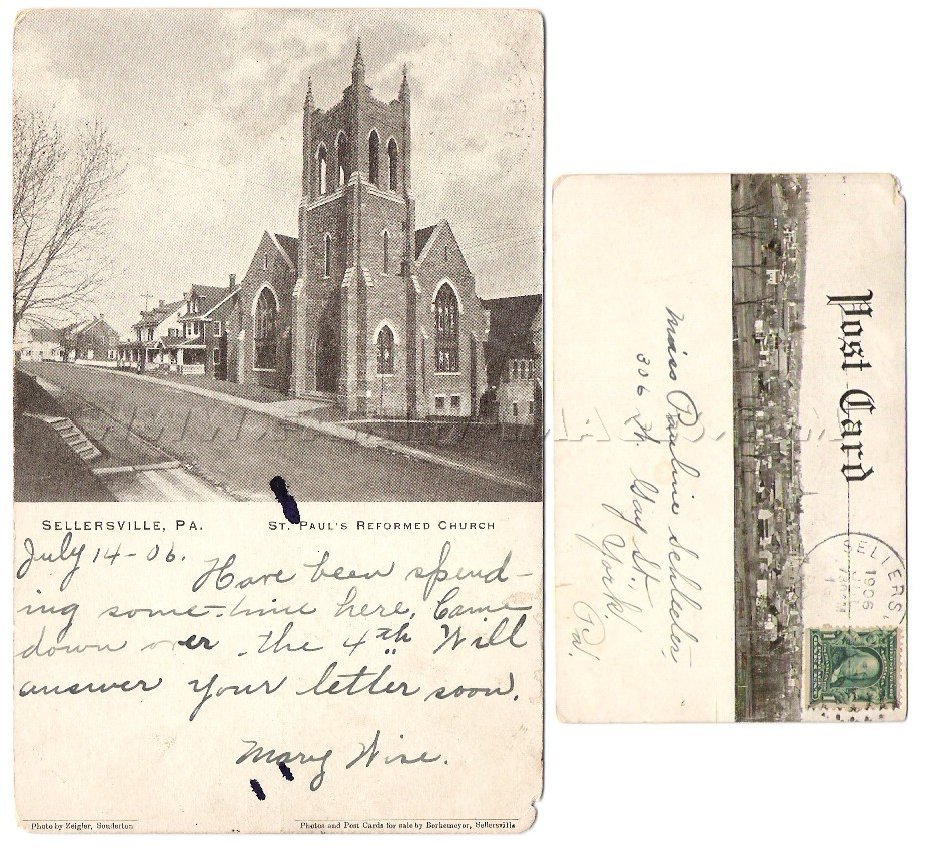 SELLERSVILLE, PA. ST. PAUL'S REFORMED CHURCH
July 14-06.
Have been spend-
ing some-time here. Came
down over the 4th Will
answer your letter soon.
Mary Wise.
Photo by Zeigler, Souderton
Photos and Post Cards for sale by Berkemeyer, Sellersville
Post Card
Miss Pauline Schleder,
306 St.
York
Pa.
SELLERS
1906
1